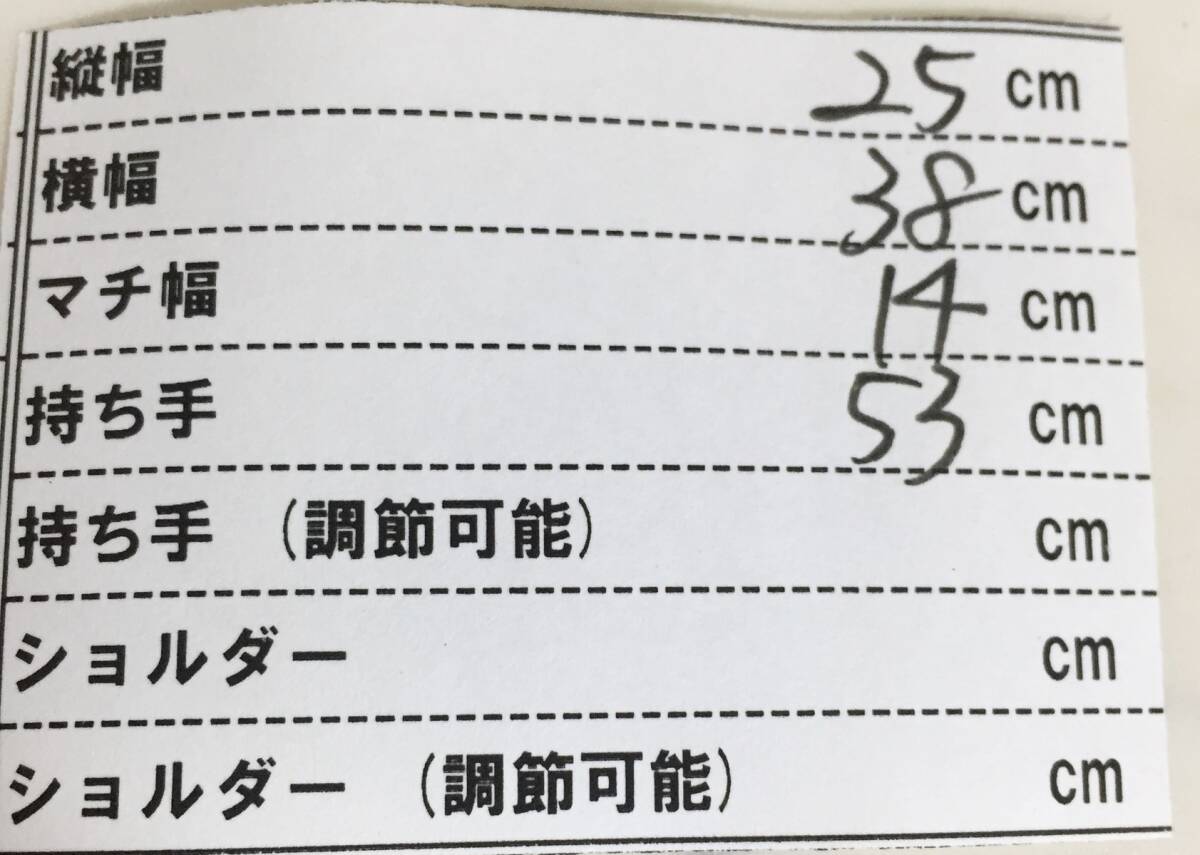 縦幅 25 cm
横幅 38 cm
マチ幅 14 cm
持ち手 53 cm
持ち手 (調節可能) cm
ショルダー cm
ショルダー (調節可能) cm